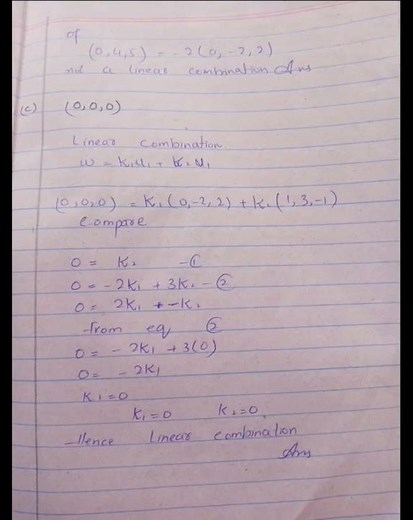 of
(0,4,5) = -2(0,-2,2)
not a linear combination Ans
(c) (0,0,0)
Linear combination
w = K₁u₁ + K₂u₂
(0,0,0) = K₁(0,-2,2) + K₂(1,3,-1)
Compare
0 = K₂ -①
0 = -2K₁ + 3K₂ -②
0 = 2K₁ + -K₂
from eq ②
0 = -2K₁ + 3(0)
0 = -2K₁
K₁=0
K₁=0 K₂=0
Hence linear combination
Ans